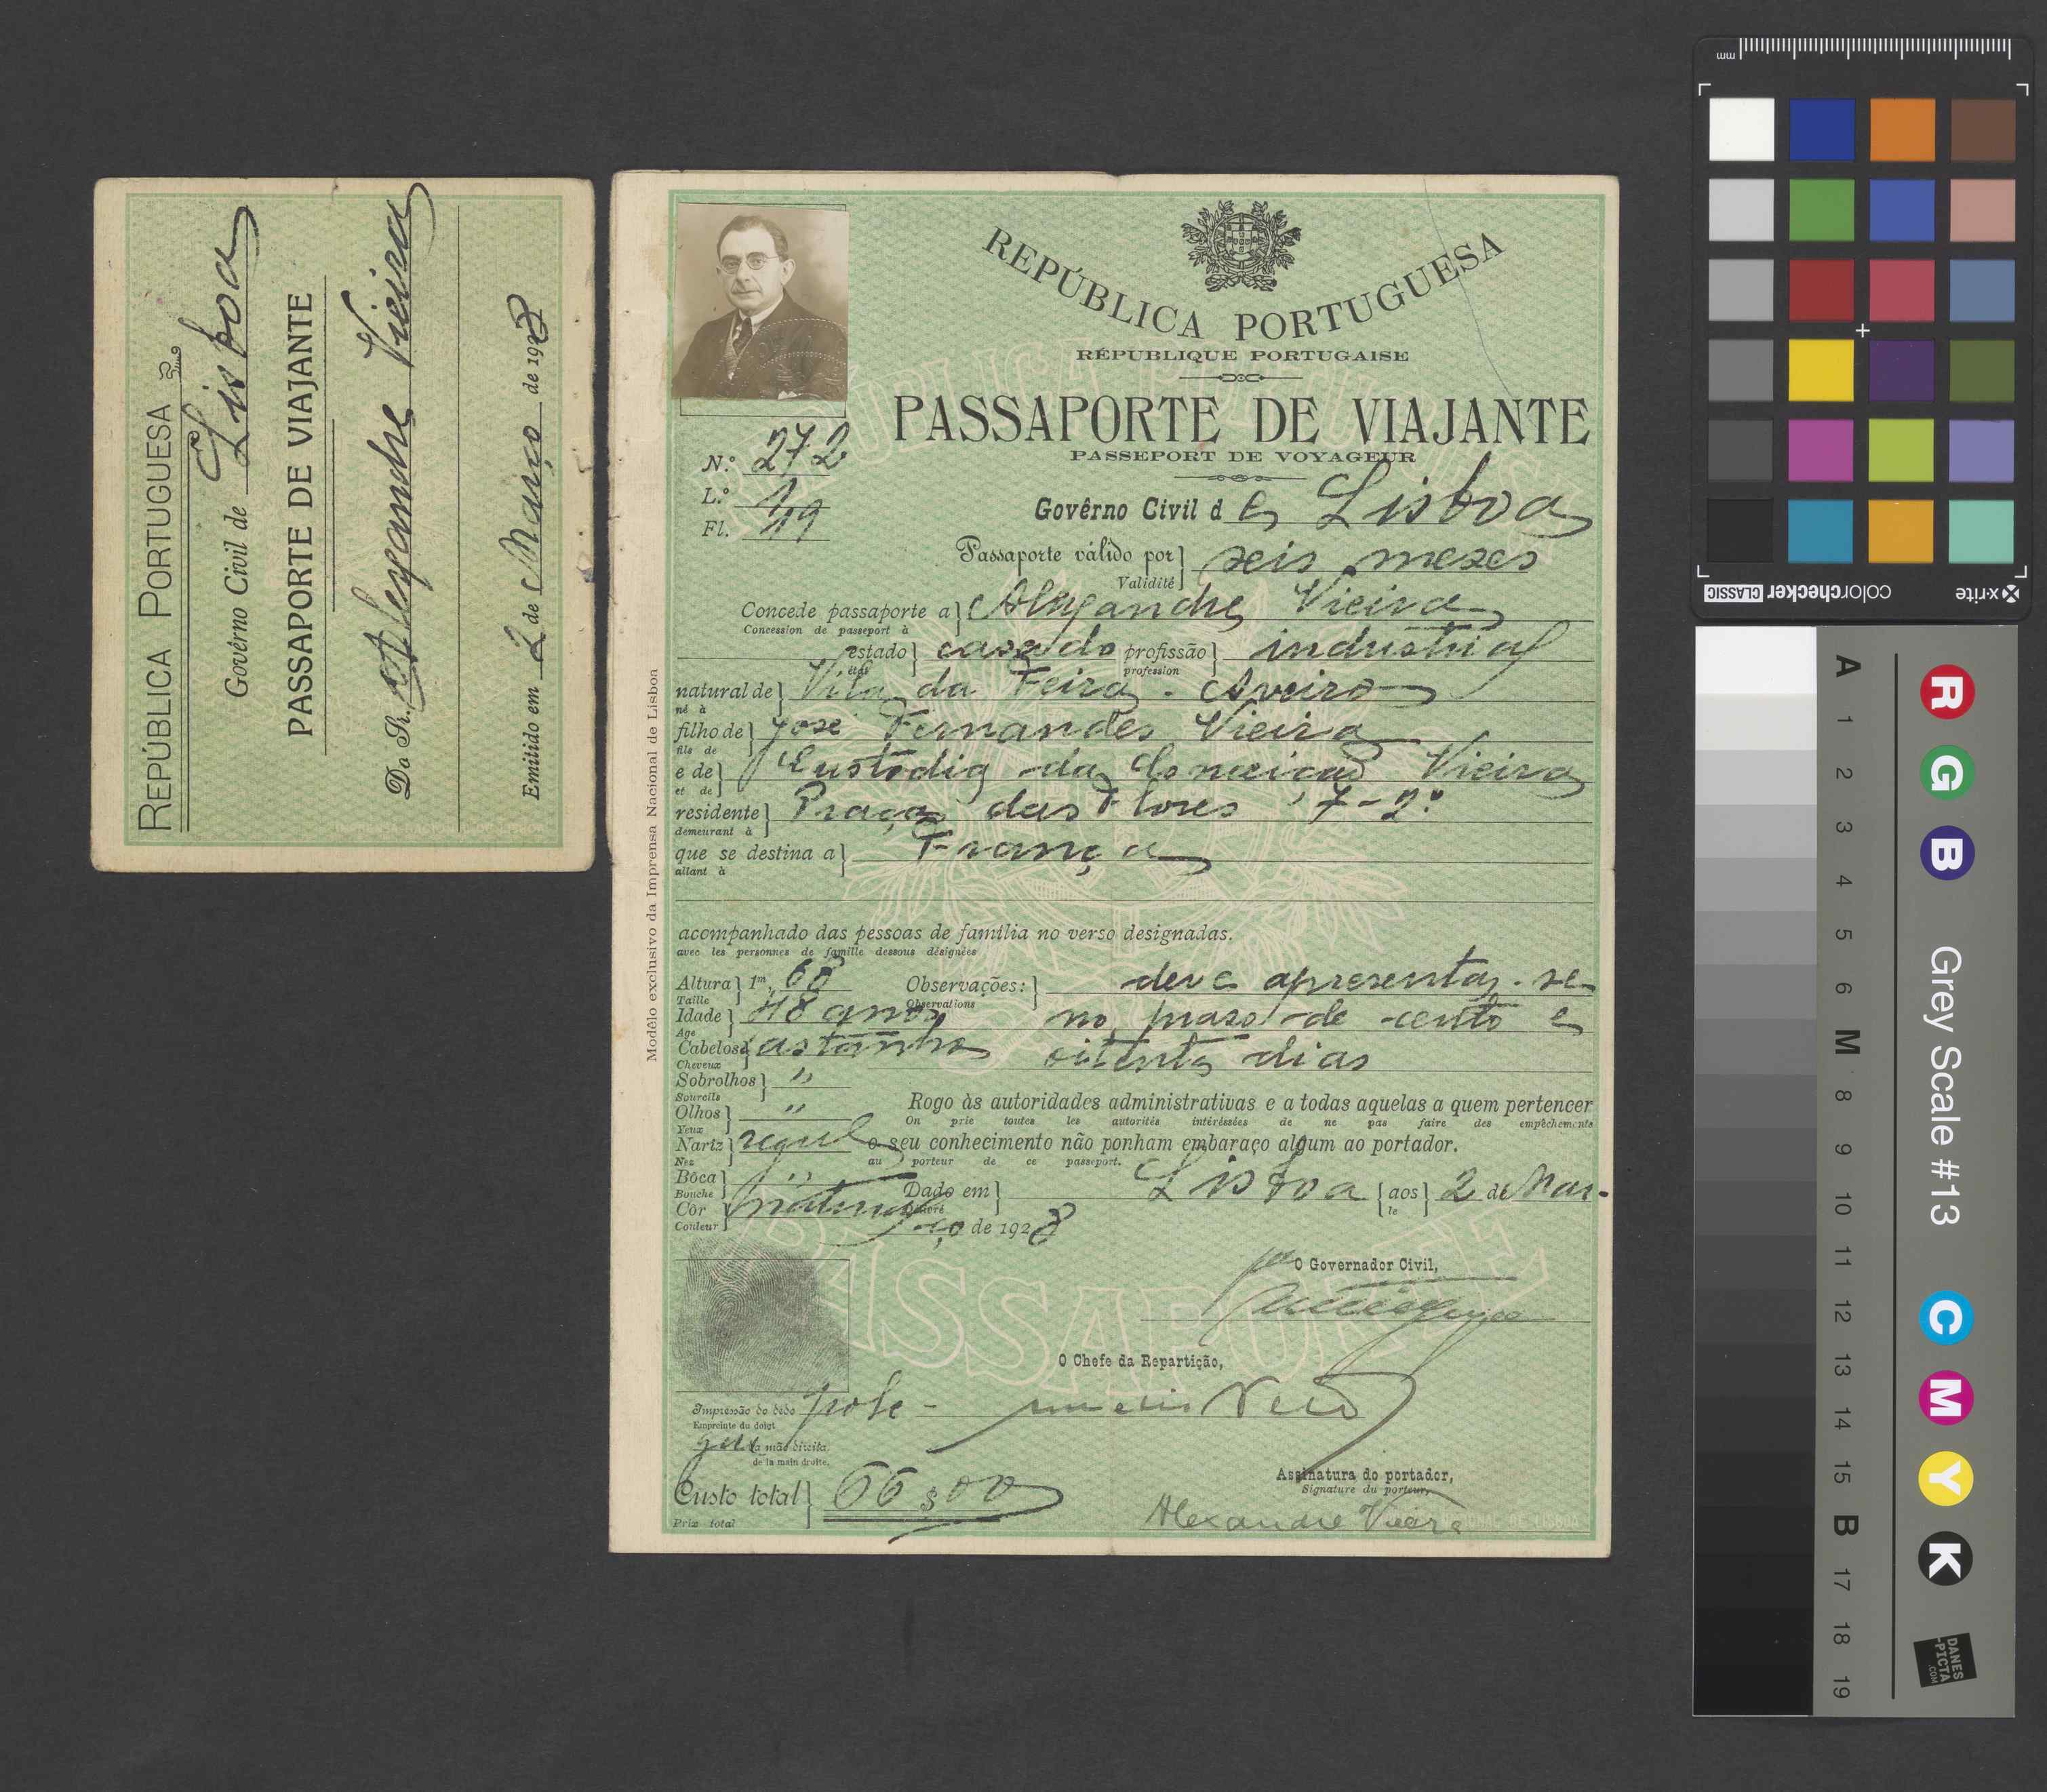 REPÚBLICA PORTUGUESA
Govêrno Civil de Lisboa
PASSAPORTE DE VIAJANTE
Do Sr. Alexandre Vieira
Emitido em 2 de Março de 1928
REPÚBLICA PORTUGUESA
RÉPUBLIQUE PORTUGAISE
PASSAPORTE DE VIAJANTE
PASSEPORT DE VOYAGEUR
N.º 272
L.º 1
Fl. 49
Govêrno Civil de Lisboa
Passaporte válido por} seis mezes
Validité
Concede passaporte a} Alexandre Vieira
Concession de passeport à
estado} casado profissão} industrial
état profession
natural de} Vila da Feira - Aveiro
né à
filho de} José Fernandes Vieira
fils de
e de} Custodia da Conceição Vieira
et de
residente} Praça das Flores, 7-2º
demeurant à
que se destina a} França
allant à
acompanhado das pessoas de família no verso designadas.
avec les personnes de famille dessous désignées
Altura} 1m, 68 Observações:} deve apresentar-se
Taille Observations
Idade} 48 anos no praso de cento e
Age
Cabelos} castanhos oitenta dias
Cheveux
Sobrolhos} "
Sourcils
Olhos} " Rogo às autoridades administrativas e a todas aquelas a quem pertencer
Yeux On prie toutes les autorités intéréssées de ne pas faire des empêchements
Nariz} regul o seu conhecimento não ponham embaraço algum ao portador.
Nez au porteur de ce passeport.
Bôca} "
Bouche
Dado em} Lisboa {aos} 2 de Mar-
le
Côr} natural
Couleur
ço de 1928
O Governador Civil,
O Chefe da Repartição,
Impressão do dedo pole-
Empreinte du doigt
gar da mão direita.
de la main droite.
Custo total} 66$00
Prix total
Assinatura do portador,
Signature du porteur,
Alexandre Vieira
Modêlo exclusivo da Imprensa Nacional de Lisboa
PASSAPORTE
mm
x-rite colorchecker CLASSIC
R G B Grey Scale #13 C M Y K
A 1 2 3 4 5 6 M 8 9 10 11 12 13 14 15 B 17 18 19
DANES
-PICTA
.COM